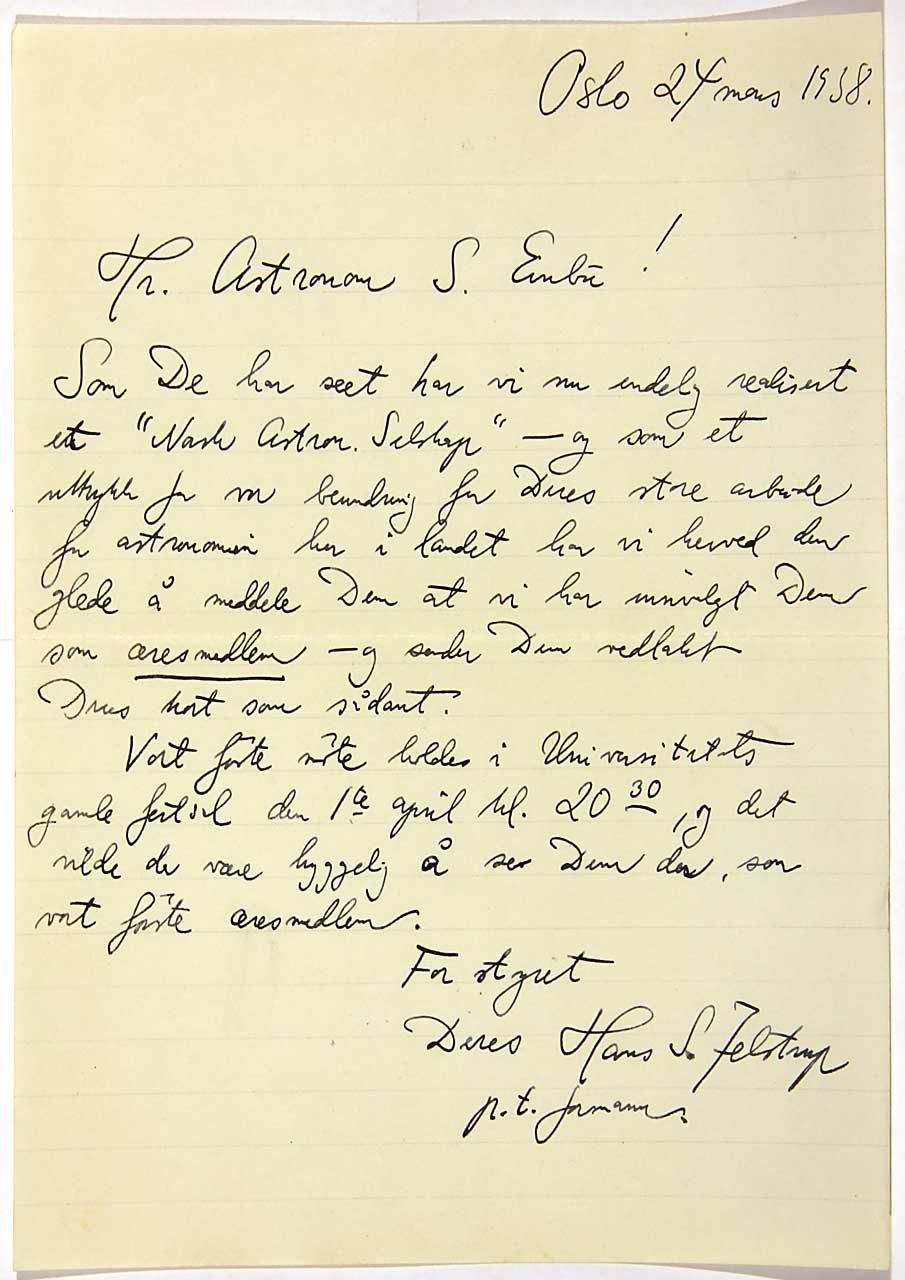 Oslo 24 mars 1938.
Hr. Astronom S. Einbu !
Som De har seet har vi nu endelig realisert
et "Norsk Astron. Selskap" — og som et
uttrykk for vor beundring for Deres store arbeide
for astronomien her i landet har vi herved den
glede å meddele Dem at vi har innvalgt Dem
som æresmedlem — og sender Dem vedlakt
Deres kort som sådant.
Vort første møte holdes i Universitetets
gamle festsal den 1ste april kl. 20 30, og det
vilde da være hyggelig å se Dem der, som
vort første æresmedlem.
For styret
Deres Hans S. Jelstrup
p.t. formann.